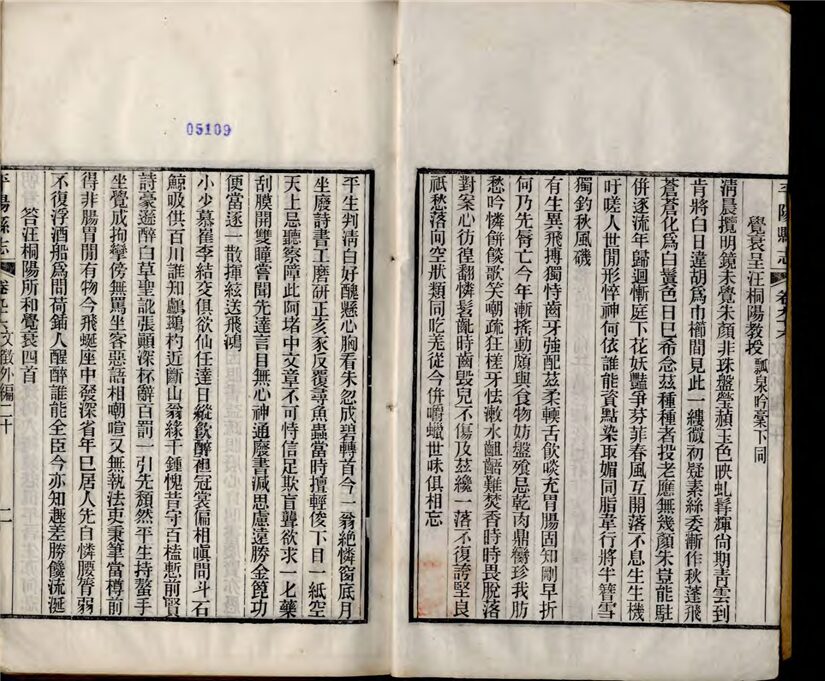 平陽縣志
卷九十六
覺衰呈汪桐陽敎授 瓢泉吟藁下同
清晨攬明鏡未覺朱顏非珠盤瑩蘋玉色映虬髯輝尙期靑雲到
肯將白日違胡爲巾櫛間見此一縷微初疑素絲委漸作秋蓬飛
蒼蒼化爲白鬒色日巳希念茲種種者投老應無幾顏朱豈能駐
併逐流年歸迴慚庭下花妖豔爭芬菲春風互開落不息生生機
吁嗟人世閒形悴神何依誰能資點染取媚同脂韋行將半簪雪
獨釣秋風磯
有生異飛搏獨恃齒牙強配茲柔輭舌飮啖充胃腸固知剛早折
何乃先脣亡今年漸搖動頗與食物妨盤飧忌乾肉鼎臠珍我肪
愁吟憐餅餤歌笑嘲疏狂槎牙怯漱水齟齬難焚香時時畏脫落
對案心彷徨翻憐髫齓時齒毀兒不傷及茲纔一落不復誇堅良
祇愁落同空狀類同吃羌從今併嚼蠟世味俱相忘
平生判淸白好醜懸心胸看朱忽成碧轉首今一翁絶憐窗底月
坐廢詩書工磨硏正亥豕反覆尋魚蟲當時擅輕俊下目一紙空
天上忌聽察障此阿堵中文章不可恃信足欺盲聾欲求一匕藥
刮膜開雙瞳嘗聞先達言目無心神通廢書減思慮遠勝金篦功
便當逐一散揮絃送飛鴻
小少慕崔李結交俱欲仙任達日縱飮醉袒冠裳偏相嗔問斗石
鯨吸供百川誰知鸕鶿杓近斷山翁緣千鍾愧昔守百榼慙前賢
詩豪遜醉白草聖訛張顚深杯辭百罰一引先頹然平生持螯手
坐覺成拘攣傍無罵坐客惡語相嘲喧又無執法吏秉筆當樽前
得非腸胃閒有物今飛蜒座中發深省年巳居人先自憐腰膂弱
不復浮酒船爲問荷鍤人醒醉誰能全臣今亦知趣差勝饞流涎
答汪桐陽所和覺衰四首
平陽縣志
卷九十六
文徵外編二十
二
05109